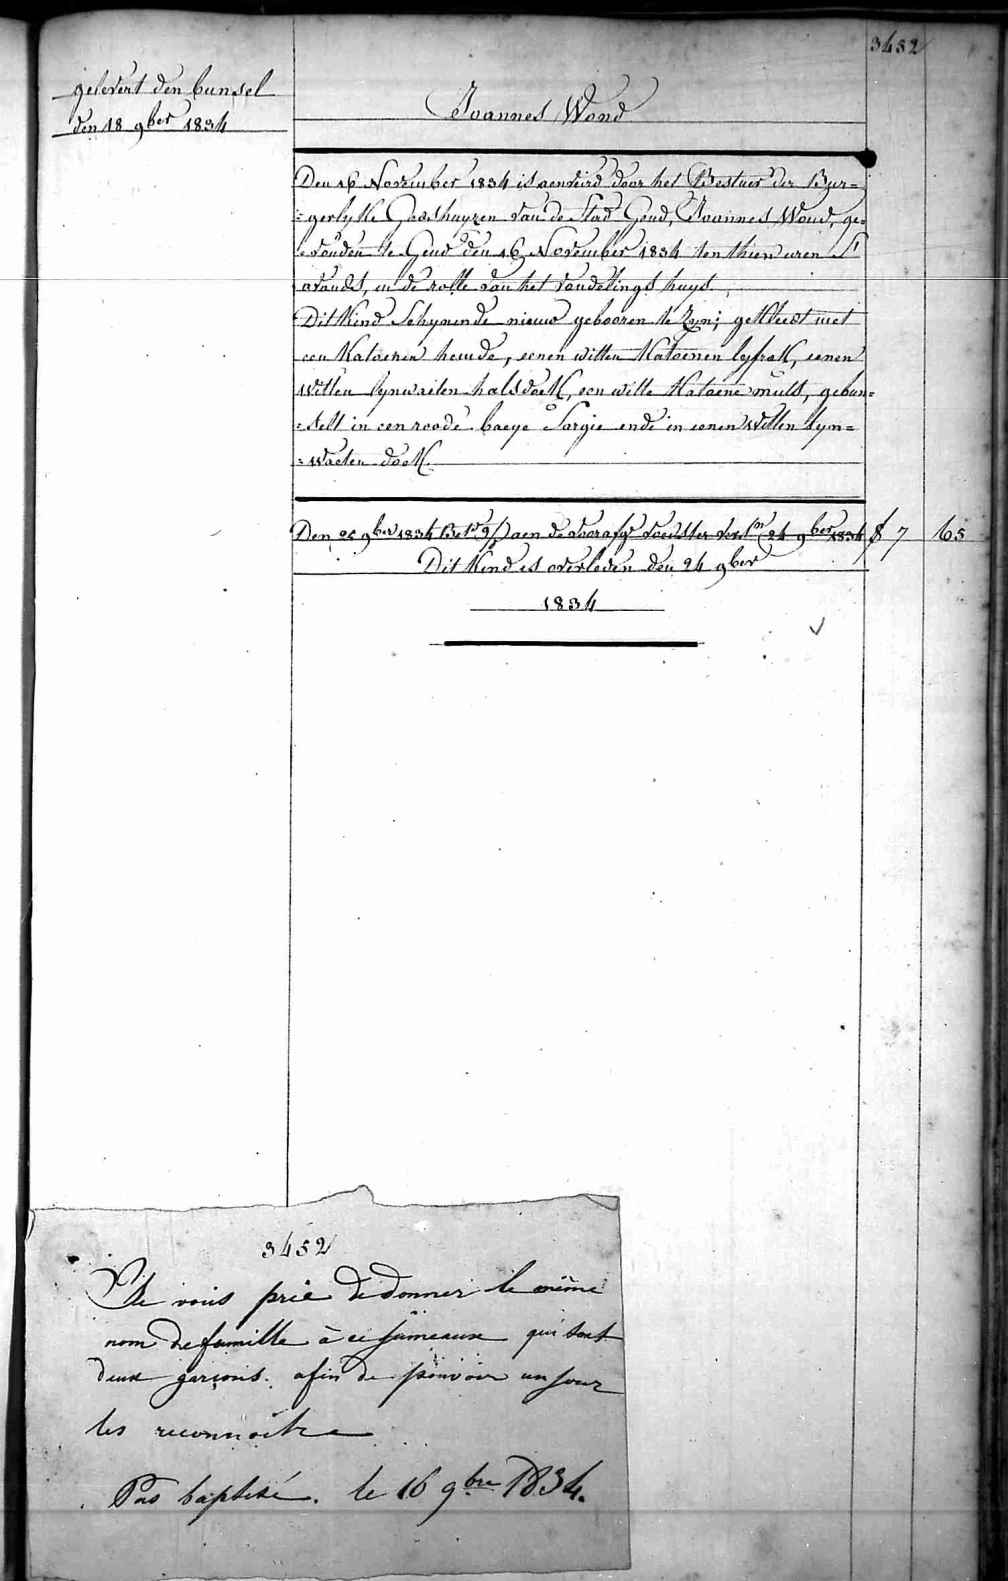 3452
gelevert den bunsel
den 18 9ber 1834
Joannes Wond
Den 16 November 1834 is aenveird door het Bestuer der Bur=
=gerlyke Godshuyzen van de Stad Gend, Joannes Wond, ge=
=vonden te Gend den 16 November 1834 ten thien uren S'
avonds, in de rolle van het vondelings huys.
Dit Kind Schynende nieuw gebooren te Zyn; gekleed met
een Katoenen hemde, eenen witten Katoenen lyfrok, eenen
witten lynwaeten halsdoek, een witte Katoene muts, gebun=
=delt in een roode baeye Sargie ende in eenen witten lyn=
=waeten doek.
Den 25 9ber 1834 aen de voorafg. voedster 24 9ber 1834 f 7 65
Dit Kind is overleden den 24 9ber
1834
3452
Je vous prie de donner le même
nom de famille à ce jumeaux qui sont
deux garçons. afin de pouvoir un jour
les reconnoître
Pas baptisé. le 16 9bre 1834.